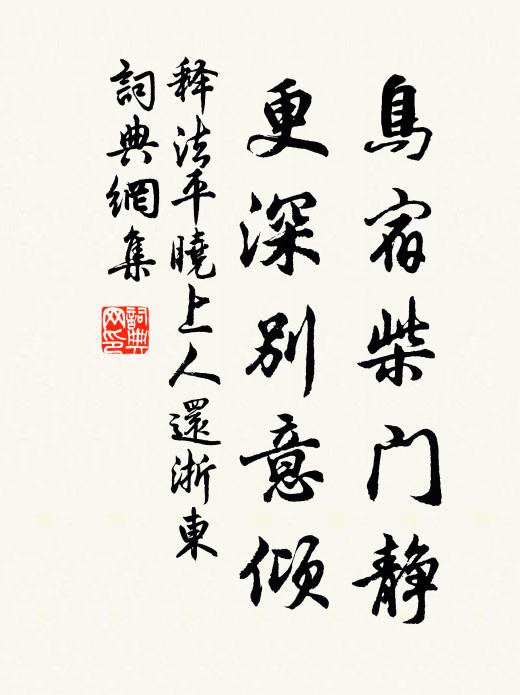 鳥宿柴门静
更深別意傾
释法平曉上人還浙東
詞典網集
詞典网印